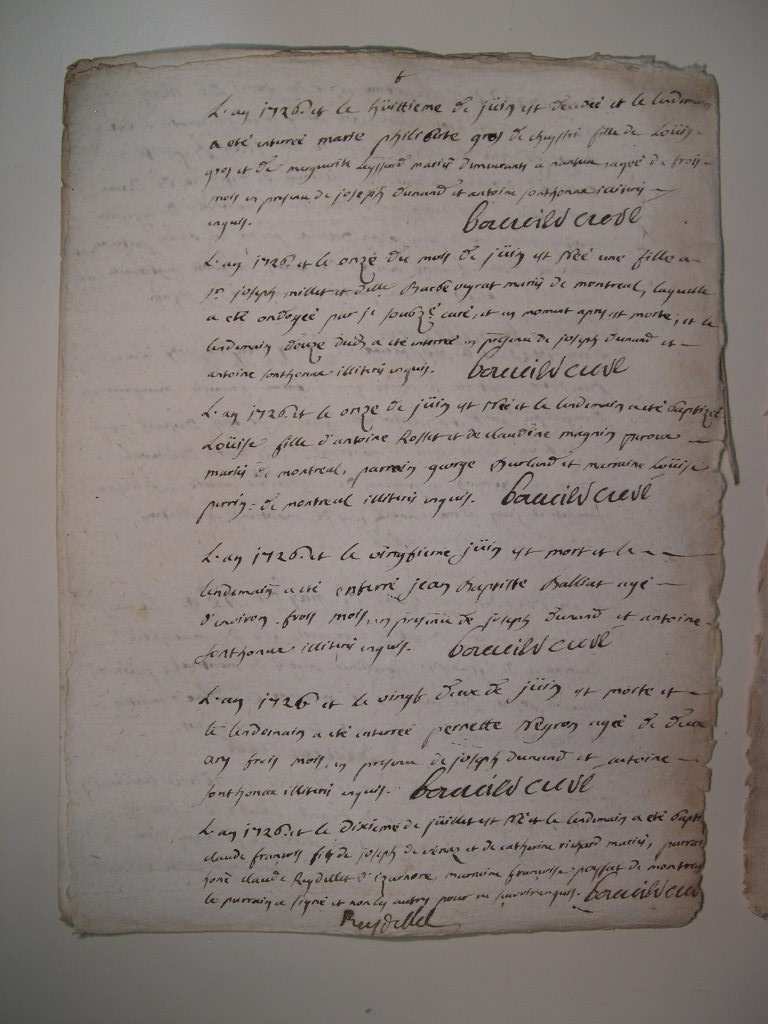 6
L'an 1726. et le huittieme de juin est decedé et le lendemain
a eté enterreé marie philiberte gros de fille de Loüis
gros et de marguerite mariés demeurants a ageé de trois
mois en presence de joseph Durand et antoine sonthonax illiterés
enquis. Bouveild curé
L'an 1726. et le onze du mois de juin est neé une fille a
Sr joseph millet et dlle Barbe veyrat mariés de montreal, laquelle
a eté ondoyeé par je soubzé curé, et un moment apres est morte, et le
lendemain douze dudit a eté enterreé en presence de joseph Durand et
antoine sonthonax illiterés enquis. curé
L'an 1726. et le onze de juin est neé et le lendemain a eté Baptizeé
Loüise fille d'antoine Rosset et de claudine magnin
mariés de montreal, parrein george Burland et marraine Loüise
perrin de montreal illiterés enquis. curé
L'an 1726. et le vingtieme juin est mort et le
lendemain a eté enterré jean Baptiste Balliat agé
d'environ trois mois, en presence de joseph Durand et antoine
sonthonax illiterés enquis. curé
L'an 1726 et le vingt deux de juin est morte et
le lendemain a eté enterreé pernette Neyron ageé de deux
ans trois mois, en presence de joseph Durand et antoine
sonthonax illiterés enquis. curé
L'an 1726. et le Dixieme de juillet est né et le lendemain a eté Bapt
claude françois fils de joseph de et de catherine richard mariés, parrain
claude Reydellet d'izernore marraine françoise de montreal
le parrain a signé et non les autres pour ne enquis. curé
Reydellet